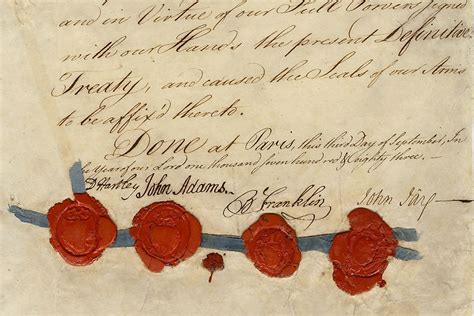 and in Virtue of our Full Powers Signed
with our Hands the present Definitive
Treaty, and caused the Seals of our Arms
to be affix'd thereto.
Done at Paris, this third Day of September, In
the Year of our Lord one thousand seven hundred & eighty three.
D Hartley John Adams. B Franklin John Jay